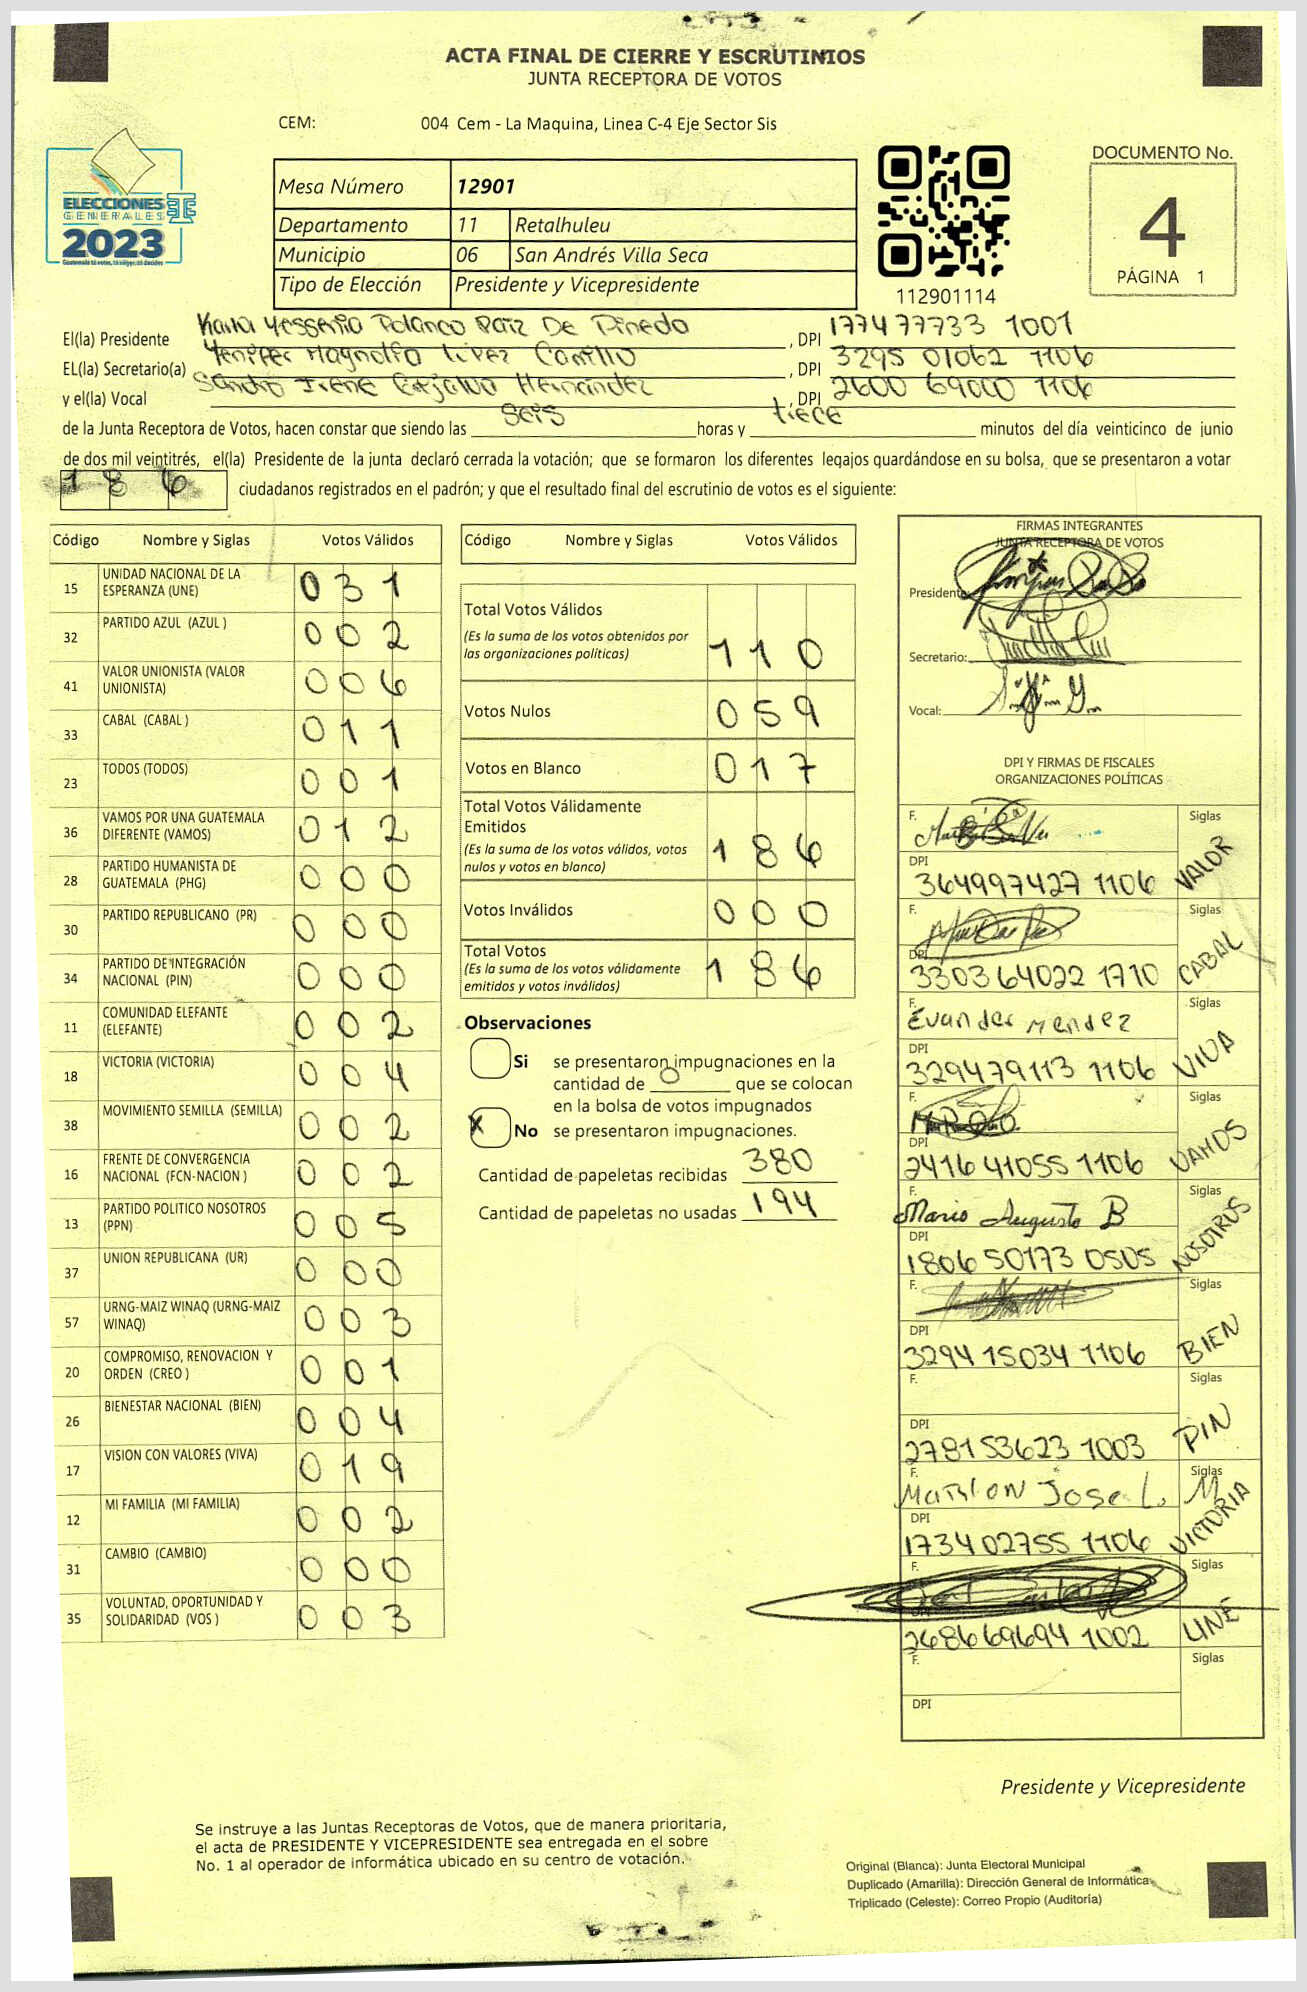 ACTA FINAL DE CIERRE Y ESCRUTINIOS
JUNTA RECEPTORA DE VOTOS
CEM: 004 Cem - La Maquina, Linea C-4 Eje Sector Sis
ELECCIONES
GENERALES
2023
Mesa Número 12901
Departamento 11 Retalhuleu
Municipio 06 San Andrés Villa Seca
Tipo de Elección Presidente y Vicepresidente
112901114
DOCUMENTO No.
4
PÁGINA 1
El(la) Presidente Karla Yessenia Polanco Paiz De Pinedo, DPI 177477733 1001
EL(la) Secretario(a) Yenifer Magnolia López Castillo, DPI 3295 01062 1106
y el(la) Vocal Sandra Irene Hernández, DPI 2600 69000 1106
de la Junta Receptora de Votos, hacen constar que siendo las seis horas y trece minutos del día veinticinco de junio
de dos mil veintitrés, el(la) Presidente de la junta declaró cerrada la votación; que se formaron los diferentes legajos guardándose en su bolsa, que se presentaron a votar
186 ciudadanos registrados en el padrón; y que el resultado final del escrutinio de votos es el siguiente:
Código Nombre y Siglas Votos Válidos
15 UNIDAD NACIONAL DE LA ESPERANZA (UNE) 031
32 PARTIDO AZUL (AZUL ) 002
41 VALOR UNIONISTA (VALOR UNIONISTA) 006
33 CABAL (CABAL ) 011
23 TODOS (TODOS) 001
36 VAMOS POR UNA GUATEMALA DIFERENTE (VAMOS) 012
28 PARTIDO HUMANISTA DE GUATEMALA (PHG) 000
30 PARTIDO REPUBLICANO (PR) 000
34 PARTIDO DE INTEGRACIÓN NACIONAL (PIN) 000
11 COMUNIDAD ELEFANTE (ELEFANTE) 002
18 VICTORIA (VICTORIA) 004
38 MOVIMIENTO SEMILLA (SEMILLA) 002
16 FRENTE DE CONVERGENCIA NACIONAL (FCN-NACION ) 002
13 PARTIDO POLITICO NOSOTROS (PPN) 005
37 UNION REPUBLICANA (UR) 000
57 URNG-MAIZ WINAQ (URNG-MAIZ WINAQ) 003
20 COMPROMISO, RENOVACION Y ORDEN (CREO ) 001
26 BIENESTAR NACIONAL (BIEN) 004
17 VISION CON VALORES (VIVA) 019
12 MI FAMILIA (MI FAMILIA) 002
31 CAMBIO (CAMBIO) 000
35 VOLUNTAD, OPORTUNIDAD Y SOLIDARIDAD (VOS ) 003
Código Nombre y Siglas Votos Válidos
Total Votos Válidos 110
(Es la suma de los votos obtenidos por
las organizaciones políticas)
Votos Nulos 059
Votos en Blanco 017
Total Votos Válidamente
Emitidos 186
(Es la suma de los votos válidos, votos
nulos y votos en blanco)
Votos Inválidos 000
Total Votos 186
(Es la suma de los votos válidamente
emitidos y votos inválidos)
Observaciones
Si se presentaron impugnaciones en la
cantidad de 0 que se colocan
en la bolsa de votos impugnados
X No se presentaron impugnaciones.
Cantidad de papeletas recibidas 380
Cantidad de papeletas no usadas 194
FIRMAS INTEGRANTES
JUNTA RECEPTORA DE VOTOS
Presidente:
Secretario:
Vocal:
DPI Y FIRMAS DE FISCALES
ORGANIZACIONES POLÍTICAS
F. Siglas
DPI 364997427 1106 VALOR
F. Siglas
DPI 3303 64022 1710 CABAL
F. Evander Mendez Siglas
DPI 329479113 1106 VIVA
F. Siglas
DPI 2416 41055 1106 VAMOS
F. Mario Augusto B Siglas
DPI 1806 50173 0505 NOSOTROS
F. Siglas
DPI 3294 15034 1106 BIEN
F. Siglas
DPI 2781 53623 1003 PIN
F. Marlon Jose L. M Siglas
DPI 1734 02755 1106 VICTORIA
F. Siglas
DPI 2686 69694 1002 UNE
F. Siglas
DPI
Presidente y Vicepresidente
Se instruye a las Juntas Receptoras de Votos, que de manera prioritaria,
el acta de PRESIDENTE Y VICEPRESIDENTE sea entregada en el sobre
No. 1 al operador de informática ubicado en su centro de votación.
Original (Blanca): Junta Electoral Municipal
Duplicado (Amarilla): Dirección General de Informática
Triplicado (Celeste): Correo Propio (Auditoría)